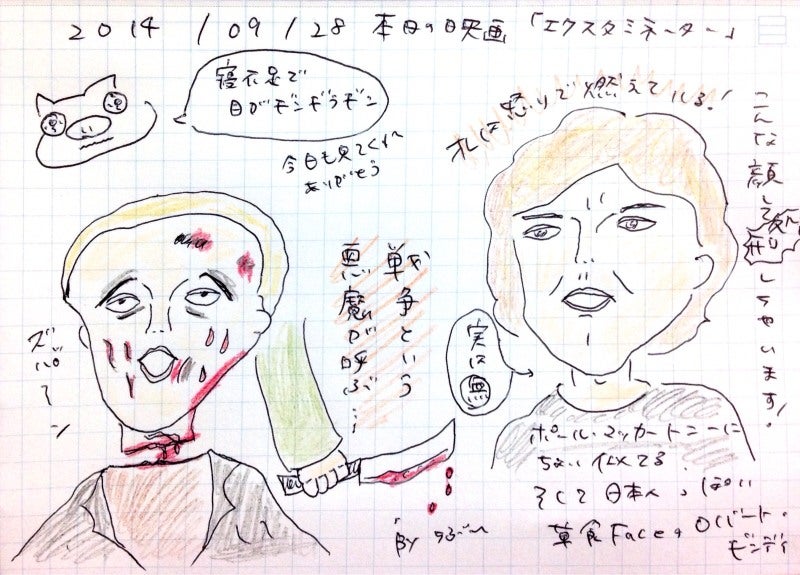 2014/09/28 本日の日映画「エクスタミネーター」
寝不足で
目がギンギラギン
今日も見てくれて
ありがとう
オレは怒りで燃えている!
こんな顔して処刑しちゃいます!
戦争という
悪魔が呼ぶ…
ズバーン
実は無
ポール・マッカートニーに
ちょい似てる
そして日本人っぽい
草食Faceのロバート・
ギンティ
By